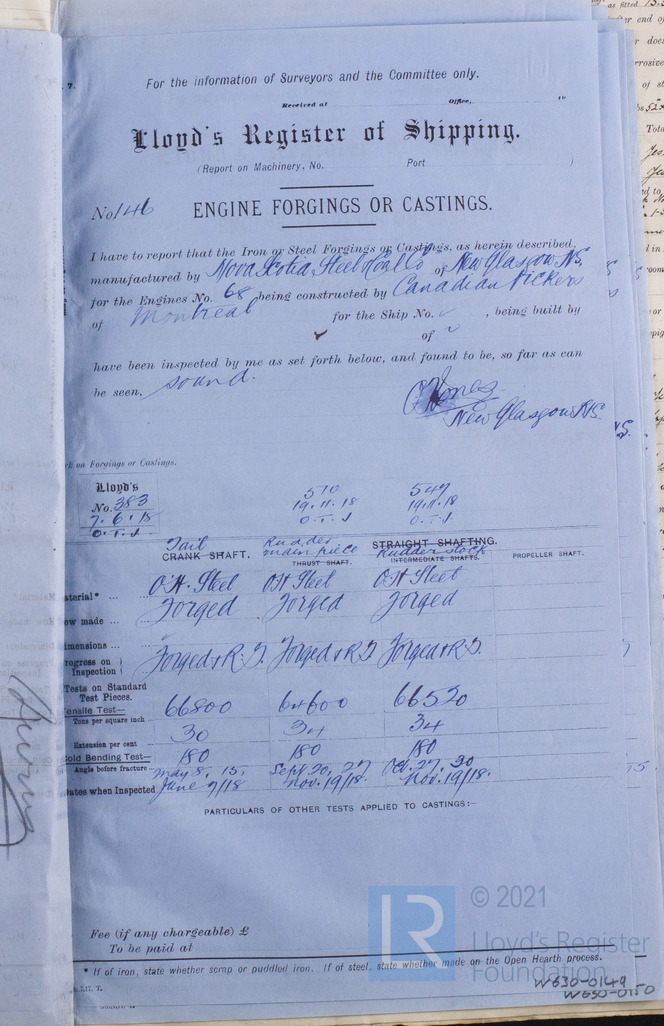 7.
For the information of Surveyors and the Committee only.
Received at Office, 19
Lloyd's Register of Shipping.
(Report on Machinery, No. Port )
No 146
ENGINE FORGINGS OR CASTINGS.
I have to report that the Iron or Steel Forgings or Castings, as herein described,
manufactured by Nova Scotia Steel & Coal Co of New Glasgow N.S.
for the Engines No. 68 being constructed by Canadian Vickers
of Montreal for the Ship No. , being built by
of
have been inspected by me as set forth below, and found to be, so far as can
be seen, sound.
New Glasgow N.S.
rk on Forgings or Castings.
Lloyd's
No. 383 510 549
7.6.18 19.11.18 19.11.18
O.T.J O.T.J O.T.J
Tail Rudder main piece STRAIGHT SHAFTING. Rudder stock
CRANK SHAFT. THRUST SHAFT. INTERMEDIATE SHAFTS. PROPELLER SHAFT.
aterial* ... O.H. Steel O.H Steel O.H Steel
ow made ... Forged Forged Forged
imensions ...
rogress on Inspection Forged & R.T. Forged & R T Forged & R T.
Tests on Standard
Test Pieces.
ensile Test— 66800 64600 66520
Tons per square inch
Extension per cent 30 34 34
old Bending Test— 180 180 180
Angle before fracture May 8, 15, Sept 20, 27 Oct. 27, 30
ates when Inspected June 7/18 Nov. 19/18. Nov. 19/18.
PARTICULARS OF OTHER TESTS APPLIED TO CASTINGS:—
Fee (if any chargeable) £
To be paid at
* If of iron, state whether scrap or puddled iron. If of steel, state whether made on the Open Hearth process.
LR
© 2021
Lloyd's Register
Foundation
W630-0149
W630-0150